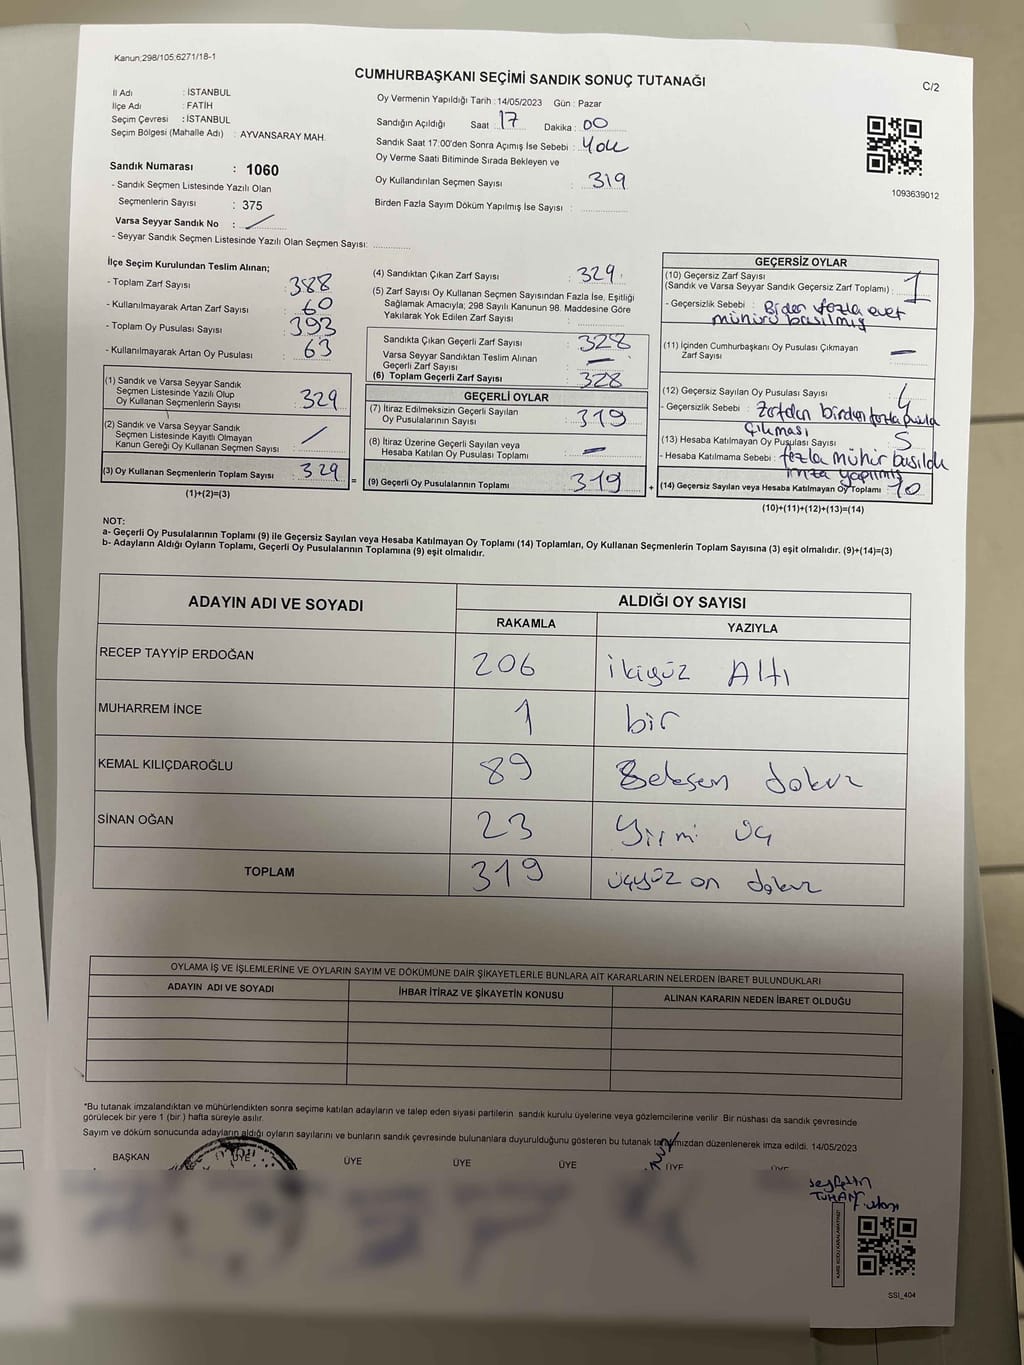 Kanun:298/105;6271/18-1
CUMHURBAŞKANI SEÇİMİ SANDIK SONUÇ TUTANAĞI
C/2
İl Adı : İSTANBUL
İlçe Adı : FATİH
Seçim Çevresi : İSTANBUL
Seçim Bölgesi (Mahalle Adı) : AYVANSARAY MAH.
Oy Vermenin Yapıldığı Tarih : 14/05/2023 Gün : Pazar
Sandığın Açıldığı Saat : 17 Dakika : 00
Sandık Saat 17:00'den Sonra Açımış İse Sebebi : Yok
Oy Verme Saati Bitiminde Sırada Bekleyen ve
Oy Kullandırılan Seçmen Sayısı : 319
Birden Fazla Sayım Döküm Yapılmış İse Sayısı :
1093639012
Sandık Numarası : 1060
- Sandık Seçmen Listesinde Yazılı Olan
Seçmenlerin Sayısı : 375
Varsa Seyyar Sandık No :
- Seyyar Sandık Seçmen Listesinde Yazılı Olan Seçmen Sayısı:
İlçe Seçim Kurulundan Teslim Alınan;
- Toplam Zarf Sayısı : 388
- Kullanılmayarak Artan Zarf Sayısı : 60
- Toplam Oy Pusulası Sayısı : 393
- Kullanılmayarak Artan Oy Pusulası : 63
(1) Sandık ve Varsa Seyyar Sandık
Seçmen Listesinde Yazılı Olup
Oy Kullanan Seçmenlerin Sayısı : 329
(2) Sandık ve Varsa Seyyar Sandık
Seçmen Listesinde Kayıtlı Olmayan
Kanun Gereği Oy Kullanan Seçmen Sayısı :
(3) Oy Kullanan Seçmenlerin Toplam Sayısı : 329
(1)+(2)=(3)
(4) Sandıktan Çıkan Zarf Sayısı : 329
(5) Zarf Sayısı Oy Kullanan Seçmen Sayısından Fazla İse, Eşitliği
Sağlamak Amacıyla; 298 Sayılı Kanunun 98. Maddesine Göre
Yakılarak Yok Edilen Zarf Sayısı :
Sandıkta Çıkan Geçerli Zarf Sayısı : 328
Varsa Seyyar Sandıktan Teslim Alınan
Geçerli Zarf Sayısı : —
(6) Toplam Geçerli Zarf Sayısı : 328
GEÇERLİ OYLAR
(7) İtiraz Edilmeksizin Geçerli Sayılan
Oy Pusulalarının Sayısı : 319
(8) İtiraz Üzerine Geçerli Sayılan veya
Hesaba Katılan Oy Pusulası Toplamı : —
= (9) Geçerli Oy Pusulalarının Toplamı : 319
GEÇERSİZ OYLAR
(10) Geçersiz Zarf Sayısı
(Sandık ve Varsa Seyyar Sandık Geçersiz Zarf Toplamı) : 1
- Geçersizlik Sebebi : Birden fazla evet
mühürü basılmış
(11) İçinden Cumhurbaşkanı Oy Pusulası Çıkmayan
Zarf Sayısı : —
(12) Geçersiz Sayılan Oy Pusulası Sayısı : 4
- Geçersizlik Sebebi : Zarfdan birden fazla pusula
Çıkması
(13) Hesaba Katılmayan Oy Pusulası Sayısı : 5
- Hesaba Katılmama Sebebi : fazla mühür basıldı
imza yapılmış
+ (14) Geçersiz Sayılan veya Hesaba Katılmayan Oy Toplamı : 10
(10)+(11)+(12)+(13)=(14)
NOT:
a- Geçerli Oy Pusulalarının Toplamı (9) ile Geçersiz Sayılan veya Hesaba Katılmayan Oy Toplamı (14) Toplamları, Oy Kullanan Seçmenlerin Toplam Sayısına (3) eşit olmalıdır. (9)+(14)=(3)
b- Adayların Aldığı Oyların Toplamı, Geçerli Oy Pusulalarının Toplamına (9) eşit olmalıdır.
ADAYIN ADI VE SOYADI
ALDIĞI OY SAYISI
RAKAMLA YAZIYLA
RECEP TAYYİP ERDOĞAN 206 ikiyüz Altı
MUHARREM İNCE 1 bir
KEMAL KILIÇDAROĞLU 89 Seksen dokuz
SİNAN OĞAN 23 Yirmi üç
TOPLAM 319 üçyüz on dokuz
OYLAMA İŞ VE İŞLEMLERİNE VE OYLARIN SAYIM VE DÖKÜMÜNE DAİR ŞİKAYETLERLE BUNLARA AİT KARARLARIN NELERDEN İBARET BULUNDUKLARI
ADAYIN ADI VE SOYADI İHBAR İTİRAZ VE ŞİKAYETİN KONUSU ALINAN KARARIN NEDEN İBARET OLDUĞU
*Bu tutanak imzalandıktan ve mühürlendikten sonra seçime katılan adayların ve talep eden siyasi partilerin sandık kurulu üyelerine veya gözlemcilerine verilir. Bir nüshası da sandık çevresinde
görülecek bir yere 1 (bir ) hafta süreyle asılır.
Sayım ve döküm sonucunda adayların aldığı oyların sayılarını ve bunların sandık çevresinde bulunanlara duyurulduğunu gösteren bu tutanak tarafımızdan düzenlenerek imza edildi. 14/05/2023
BAŞKAN ÜYE ÜYE ÜYE ÜYE ÜYE ÜYE
SSI_404